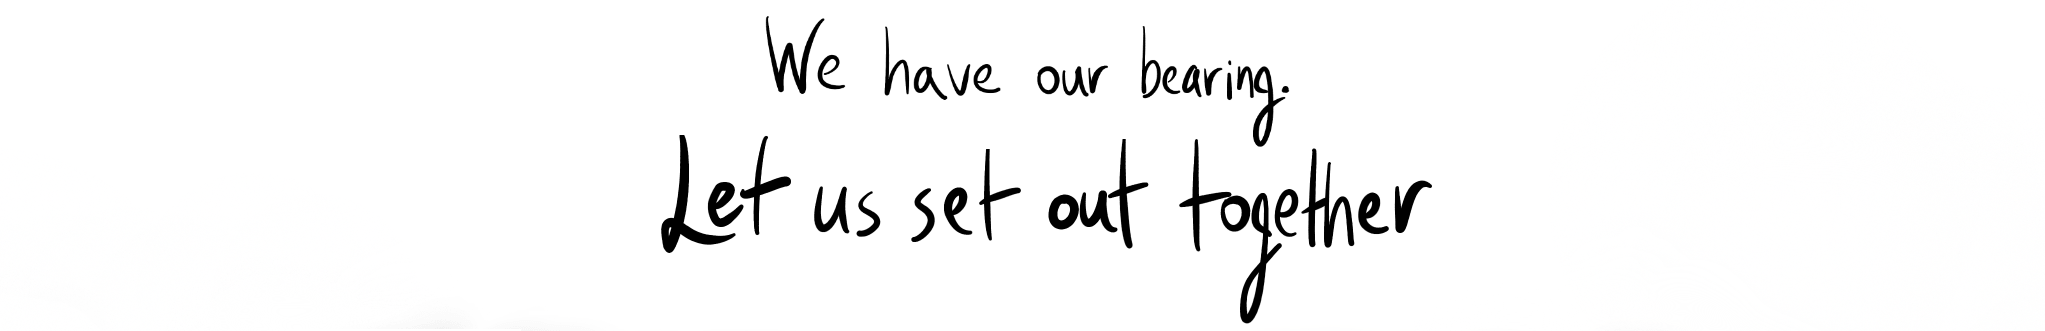 We have our bearing.
Let us set out together